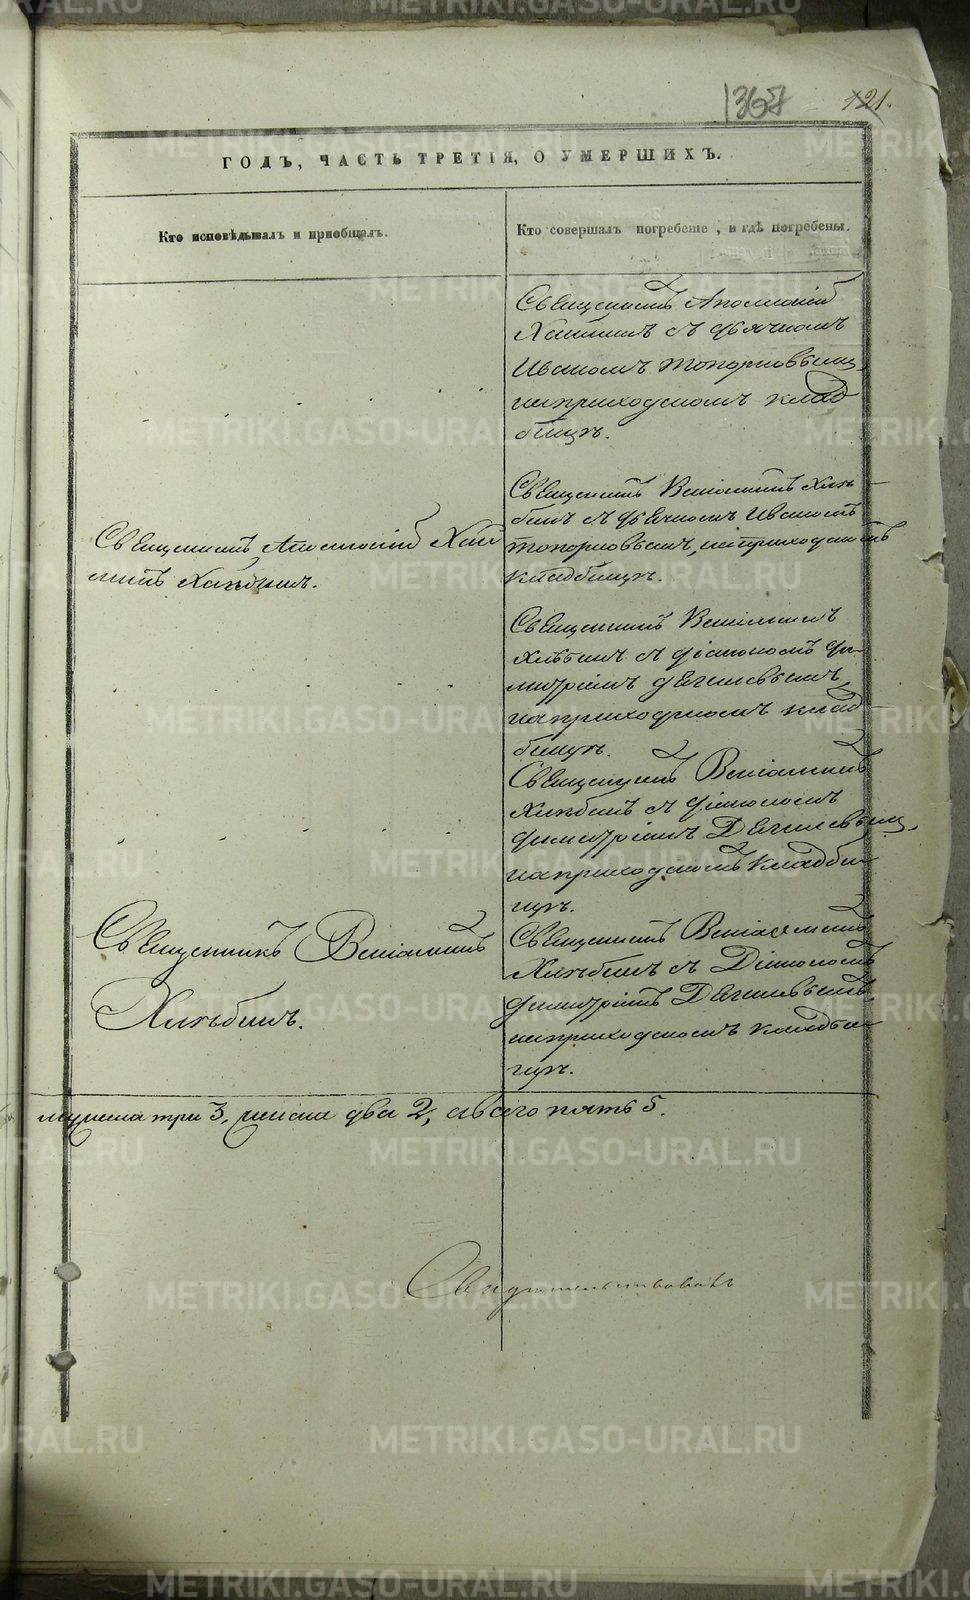 121.
ГОДЪ, ЧАСТЬ ТРЕТІЯ, О УМЕРШИХЪ.
Кто исповѣдывалъ и пріобщалъ.
Кто совершалъ погребеніе, и гдѣ погребены.
Священникъ
съ дьячкомъ
Иваномъ Топорковымъ,
на приходскомъ клад
бищѣ.
Священникъ Веніаминъ Хлѣ
бинъ съ дьячкомъ Иваномъ
Топорковымъ, на приходскомъ
кладбищѣ.
Священникъ
Священникъ Веніаминъ
Хлѣбинъ съ діакономъ Ди
митріемъ Дягилевымъ,
на приходскомъ клад
бищѣ.
Священникъ Веніаминъ
Хлѣбинъ съ діакономъ
Димитріемъ Дягилевымъ,
на приходскомъ кладби
щѣ.
Священникъ Веніаминъ
Хлѣбинъ.
Священникъ Веніаминъ
Хлѣбинъ съ Діакономъ
Димитріемъ Дягилевымъ,
на приходскомъ кладби
щѣ.
мужеска три 3, женска два 2, а всего пять 5.
Свидѣтельствовалъ
METRIKI.GASO-URAL.RU